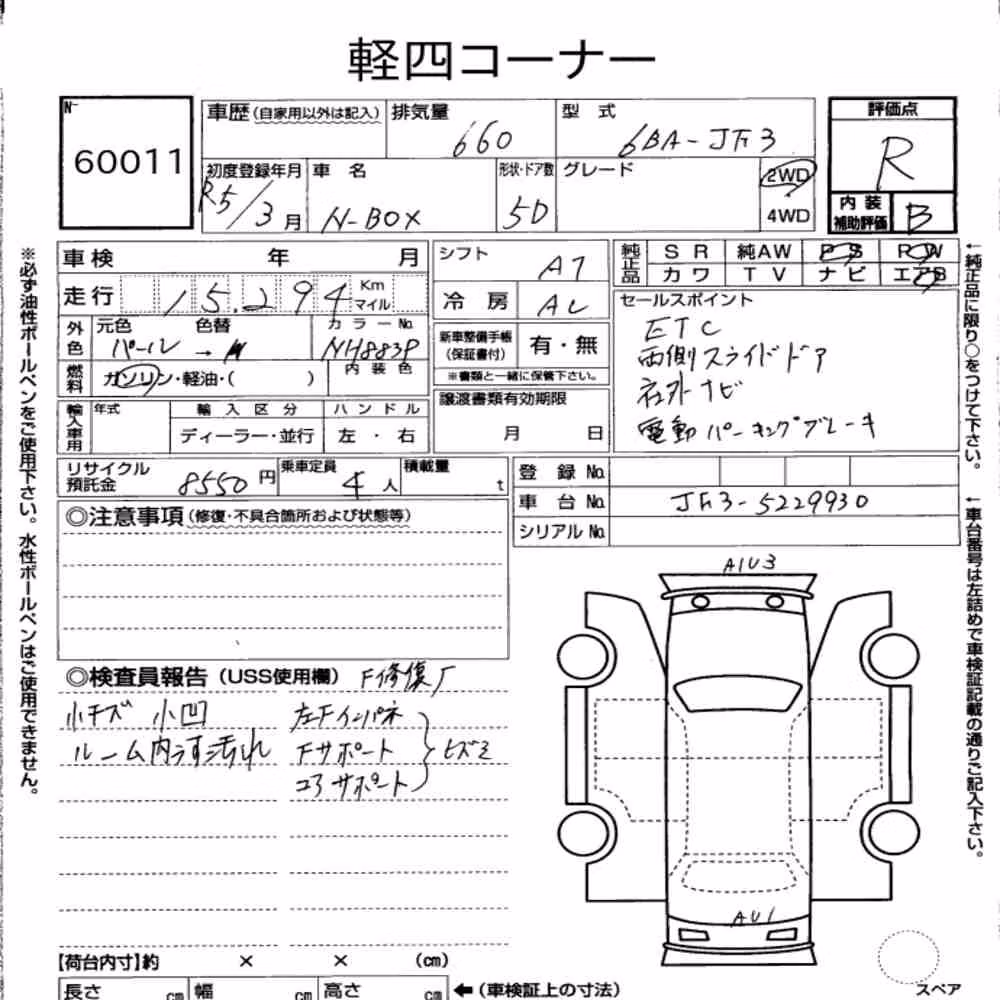 軽四コーナー
No
60011
車歴(自家用以外は記入) 排気量 660 型式 6BA-JF3
評価点 R
初度登録年月 R5/3月 車名 N-BOX 形状・ドア数 5D グレード 2WD 4WD
内装補助評価 B
車検 年 月
走行 15,294 Km マイル
外色 元色 パール → 色替 カラーNo. NH883P
燃料 ガソリン・軽油・( ) 内装色
輸入車用 年式 輸入区分 ハンドル
ディーラー・並行 左・右
シフト AT
冷房 AC
新車整備手帳(保証書付) 有・無
※書類と一緒に保管下さい。
譲渡書類有効期限
月 日
純正品 SR 純AW PS PW
カワ TV ナビ エアB
セールスポイント
ETC
両側スライドドア
社外ナビ
電動パーキングブレーキ
リサイクル預託金 8550円 乗車定員 4人 積載量 t
登録No.
車台No. JF3-5229930
シリアルNo.
◎注意事項(修復・不具合箇所および状態等)
◎検査員報告(USS使用欄) F修復歴
小キズ 小凹
ルーム内うす汚れ
左Fインパネ
Fサポート
コアサポート
ヒズミ
A1U3
AU1
【荷台内寸】約 × × (cm)
長さ cm 幅 cm 高さ cm ←(車検証上の寸法)
スペア
※必ず油性ボールペンをご使用下さい。水性ボールペンはご使用できません。
←純正品に限り○をつけて下さい。
←車台番号は左詰めで車検証記載の通りご記入下さい。